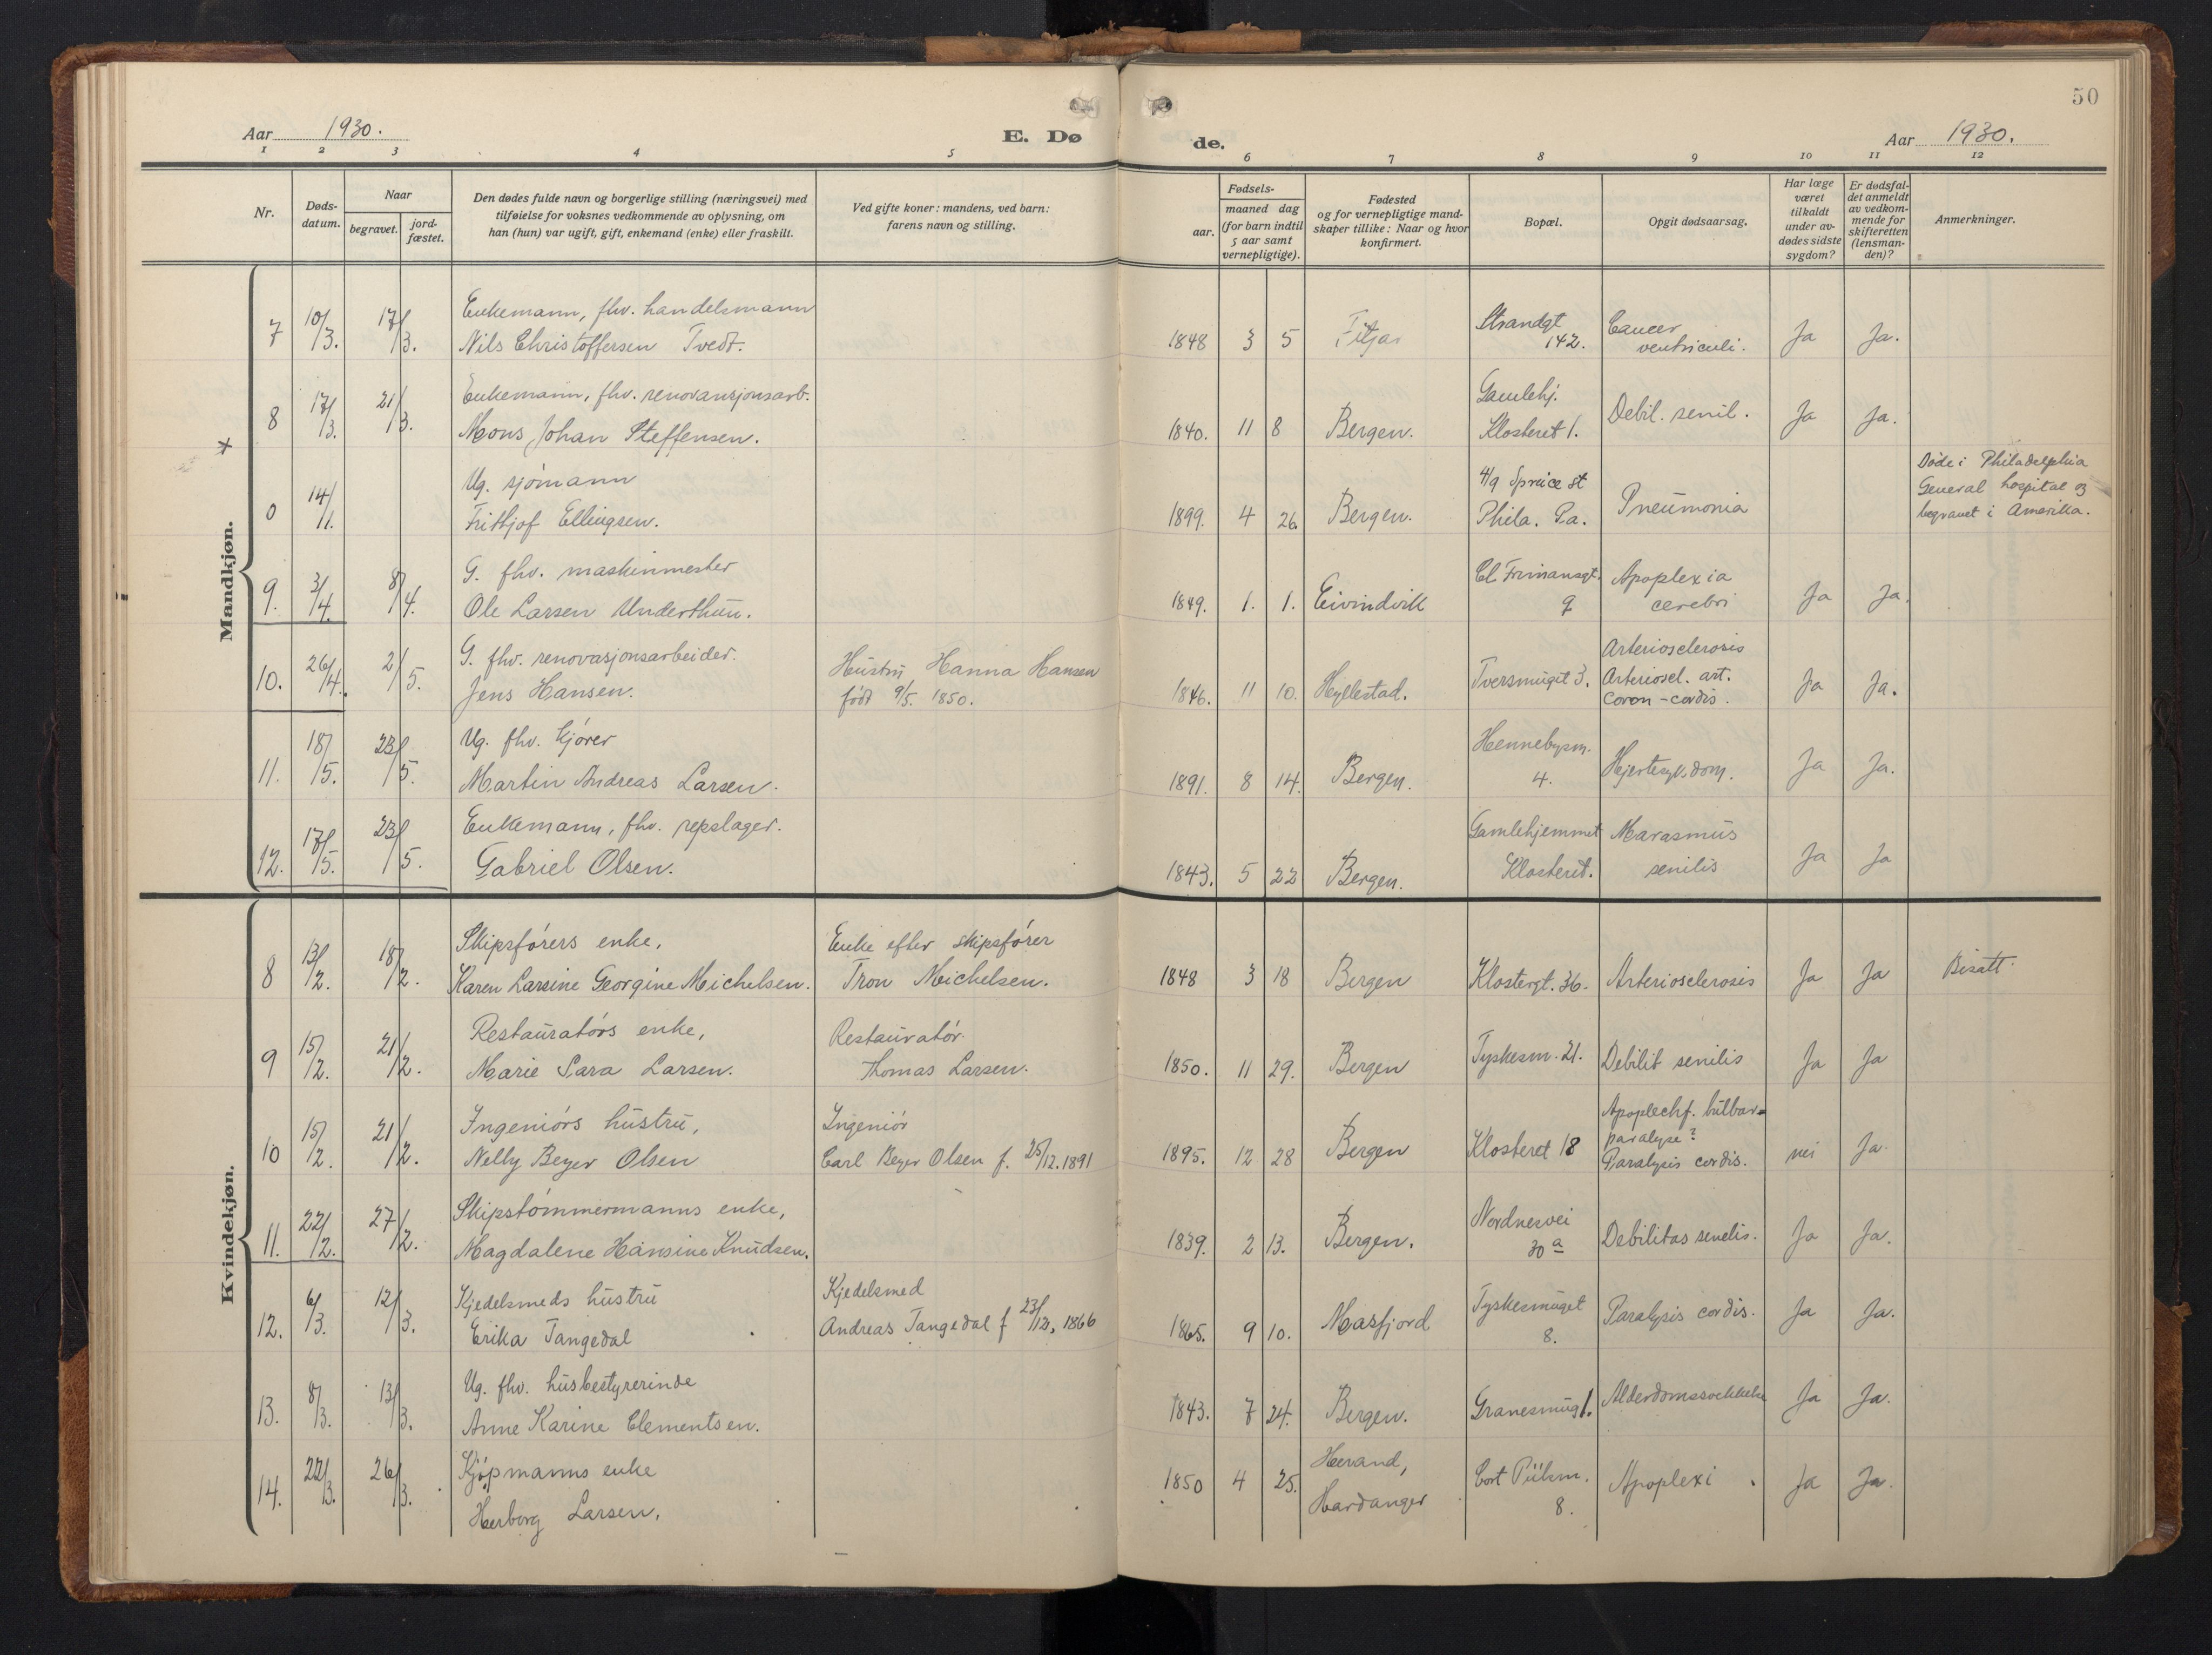 50
Aar 1930.
E. Dø
de.
Aar 1930.
1 2 3 4 5 6 7 8 9 10 11 12
Nr.
Døds-
datum.
Naar
begravet.
jord-
fæstet.
Den dødes fulde navn og borgerlige stilling (næringsvei) med
tilføielse for voksnes vedkommende av oplysning, om
han (hun) var ugift, gift, enkemand (enke) eller fraskilt.
Ved gifte koner: mandens, ved barn:
farens navn og stilling.
Fødsels-
aar.
maaned dag
(for barn indtil
5 aar samt
vernepligtige).
Fødested
og for vernepligtige mand-
skaper tillike: Naar og hvor
konfirmert.
Bopæl.
Opgit dødsaarsag.
Har læge
været
tilkaldt
under av-
dødes sidste
sygdom?
Er dødsfal-
det anmeldt
av vedkom-
mende for
skifteretten
(lensman-
den)?
Anmerkninger.
Mandkjøn.
7 10/3. 17/3. Enkemann, fhv. handelsmann
Nils Christoffersen Tvedt.
1848 3 5 Fitjar
Strandgt
142.
Cancer
ventriculi.
Ja Ja.
8 17/3. 21/3. Enkemann, fhv. renovansjonsarb.
Mons Johan Steffensen.
1840. 11 8 Bergen.
Gamlehj.
Klosteret 1.
Debil. senil. Ja Ja.
0 14/1. Ug. sjømann
Frithjof Ellingsen.
1899. 4 26. Bergen.
419 Spruce st
Phila. Pa.
Pneumonia
Døde i Philadelphia
General hospital og
begravet i Amerika.
9. 3/4. 8/4. G. fhv. maskinmester
Ole Larsen Underthun.
1849. 1. 1. Eivindvik
Cl. Frimansgt.
9
Apoplexia
cerebri
Ja Ja.
10. 26/4. 2/5. G. fhv. renovasjonsarbeider.
Jens Hansen.
Hustru Hanna Hansen
født 9/5. 1850.
1846. 11 10. Hyllestad. Tversmuget 3.
Arteriosclerosis
Arterioscl. art.
coron-cordis.
Ja Ja.
11. 18/5. 23/5. Ug. fhv. kjører
Martin Andreas Larsen.
1891. 8 14. Bergen.
Hennebysm.
4.
Hjertesykdom. Ja Ja.
12. 17/5. 23/5. Enkemann, fhv. repslager.
Gabriel Olsen.
1843. 5 22 Bergen.
Gamlehjemmet
Klosteret.
Marasmus
senilis
Ja Ja
Kvindekjøn.
8 13/2. 18/2. Skipsførers enke,
Karen Larsine Georgine Michelsen.
Enke efter skipsfører
Tron Michelsen.
1848 3 18 Bergen Klostergt. 36. Arteriosclerosis Ja Ja Bisatt.
9 15/2. 21/2. Restauratørs enke,
Marie Sara Larsen.
Restauratør.
Thomas Larsen.
1850. 11 29. Bergen Tyskesm. 21. Debilit senilis Ja Ja
10 15/2. 21/2. Ingeniørs hustru,
Nelly Beyer Olsen
Ingeniør
Carl Beyer Olsen f. 25/12. 1891
1895. 12 28 Bergen Klosteret 18
Apoplechf. bulbar=
paralyse?
Paralysis cordis.
nei Ja.
11. 22/2. 27/2. Skipstømmermanns enke,
Magdalene Hansine Knudsen.
1839. 2 13. Bergen.
Nordnesvei
30 a
Debilitas senelis. Ja Ja.
12. 6/3. 12/3. Kjedelsmeds hustru
Erika Tangedal
Kjedelsmed
Andreas Tangedal f 23/12. 1866
1865. 9 10. Masfjord
Tyskesmuget
8.
Paralysis cordis. Ja Ja.
13. 8/3. 13/3. Ug. fhv. husbestyrerinde
Anne Karine Clementsen.
1843. 7 24. Bergen. Granesmug 1. Ja Ja.
14. 22/3. 26/3. Kjøpmanns enke
Herborg Larsen.
1850 4 25.
Herand,
Hardanger
Cort Piilsm.
8.
Apoplexi Ja Ja.